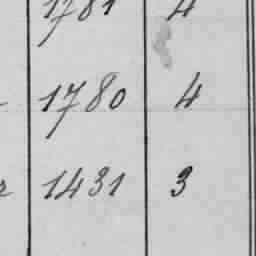 1781 4
1780 4
1431 3